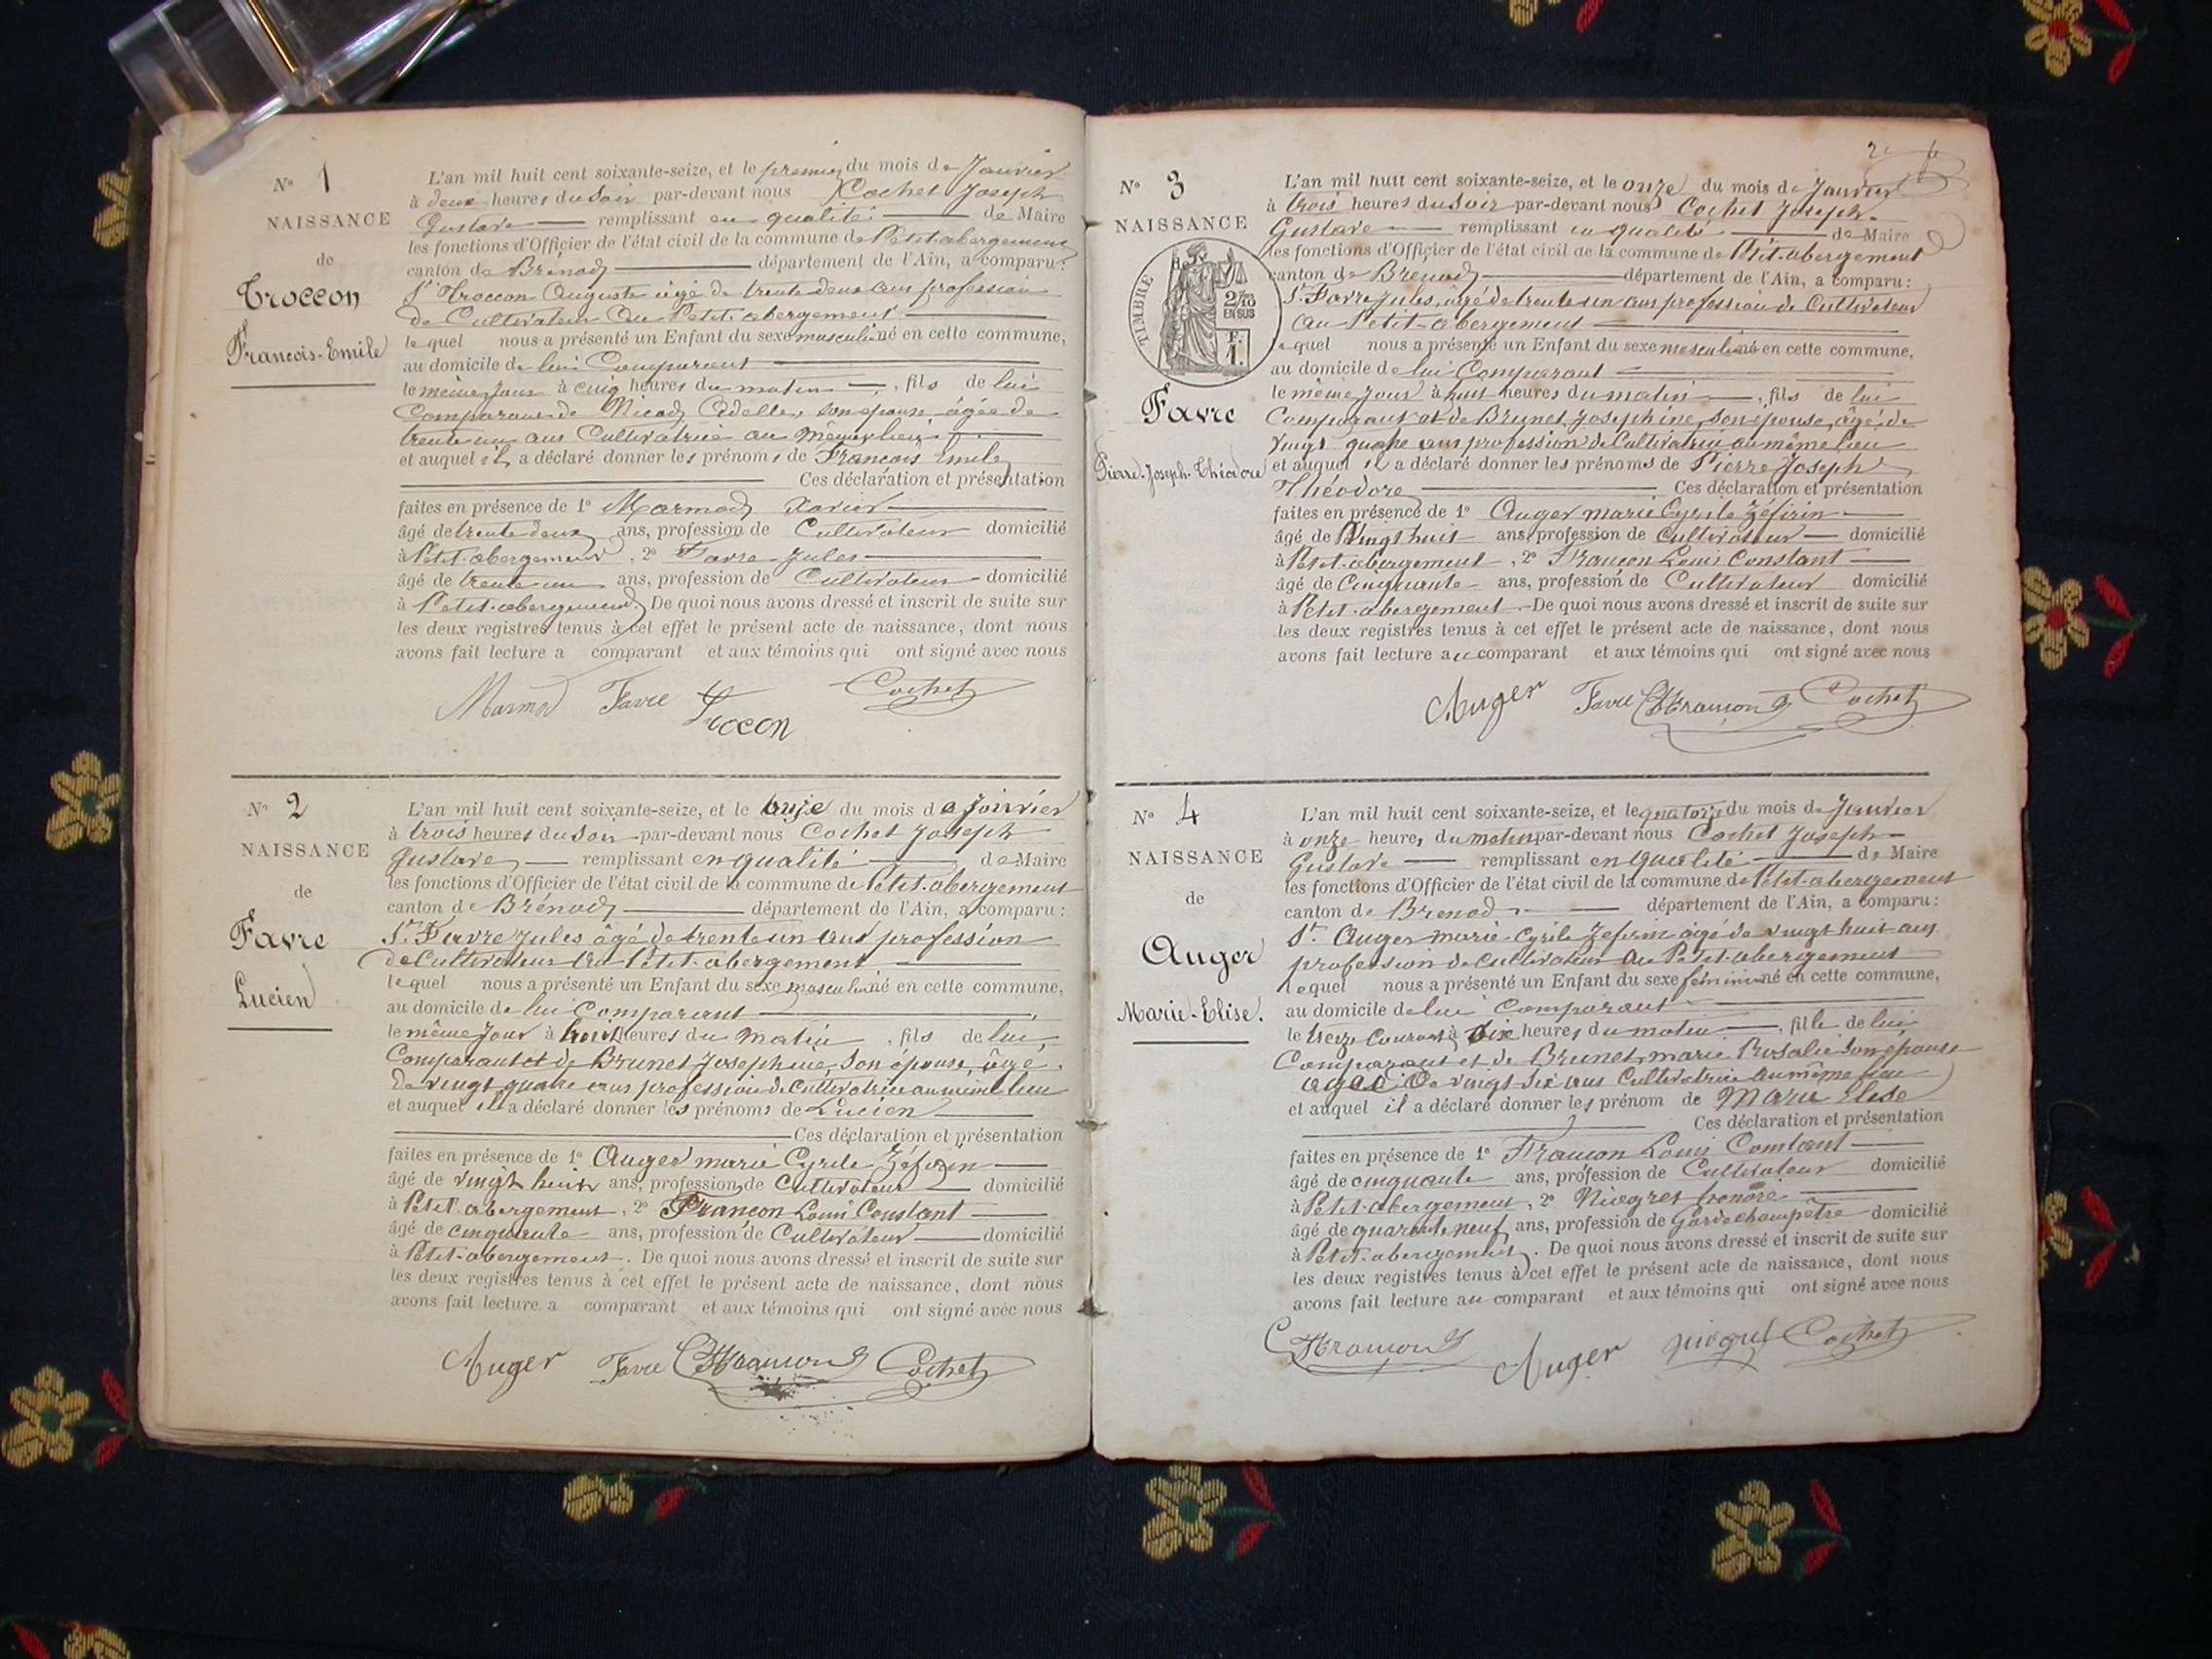 N° 1
NAISSANCE
de
Troccon
François-Emile
L'an mil huit cent soixante-seize, et le premier du mois de Janvier
à deux heures du soir par-devant nous Cochet Joseph
Gustave remplissant en qualité de Maire
les fonctions d'Officier de l'état civil de la commune de Petit-abergement
canton de Brénod département de l'Ain, a comparu:
Sr Troccon Auguste âgé de trente deux ans profession
de Cultivateur au Petit-abergement
lequel nous a présenté un Enfant du sexe masculin né en cette commune,
au domicile de lui Comparant
le même jour à cinq heures du matin, fils de lui
Comparant de Nicod Adelle, son épouse âgée de
trente un ans Cultivatrice au même lieu
et auquel il a déclaré donner les prénoms de François Emile
Ces déclaration et présentation
faites en présence de 1° Marmod Xavier
âgé de trente deux ans, profession de Cultivateur domicilié
à Petit-abergement, 2° Favre Jules
âgé de trente un ans, profession de Cultivateur domicilié
à Petit-abergement. De quoi nous avons dressé et inscrit de suite sur
les deux registres tenus à cet effet le présent acte de naissance, dont nous
avons fait lecture a comparant et aux témoins qui ont signé avec nous
Marmod Favre Trocon Cochet
N° 2
NAISSANCE
de
Favre
Lucien
L'an mil huit cent soixante-seize, et le onze du mois de Janvier
à trois heures du soir par-devant nous Cochet Joseph
Gustave remplissant en qualité de Maire
les fonctions d'Officier de l'état civil de la commune de Petit-abergement
canton de Brénod département de l'Ain, a comparu:
Sr Favre Jules âgé de trente un ans profession
de Cultivateur au Petit-abergement
lequel nous a présenté un Enfant du sexe masculin né en cette commune,
au domicile de lui Comparant
le même jour à heures du matin, fils de lui
Comparant et de Brunet Josephine, son épouse, âgé
de vingt quatre ans profession de Cultivatrice au même lieu
et auquel il a déclaré donner les prénoms de Lucien
Ces déclaration et présentation
faites en présence de 1° Auger marie Cyrile Zéfirin
âgé de vingt huit ans, profession de Cultivateur domicilié
à Petit-abergement, 2° Françon Louis Constant
âgé de cinquante ans, profession de Cultivateur domicilié
à Petit-abergement. De quoi nous avons dressé et inscrit de suite sur
les deux registres tenus à cet effet le présent acte de naissance, dont nous
avons fait lecture a comparant et aux témoins qui ont signé avec nous
Auger Favre Françon Cochet
N° 3
NAISSANCE
TIMBRE
2/10
EN SUS
F.
1.
Favre
Pierre-Joseph-Théodore
L'an mil huit cent soixante-seize, et le onze du mois de Janvier
à trois heures du soir par-devant nous Cochet Joseph
Gustave remplissant en qualité de Maire
les fonctions d'Officier de l'état civil de la commune de Petit-abergement
canton de Brénod département de l'Ain, a comparu:
Sr Favre Jules, âgé de trente un ans profession de Cultivateur
au Petit-abergement
lequel nous a présenté un Enfant du sexe masculin né en cette commune,
au domicile de lui Comparant
le même jour à huit heures du matin, fils de lui
Comparant et de Brunet Joséphine, son épouse, âgé de
vingt quatre ans profession de Cultivatrice au même lieu
et auquel il a déclaré donner les prénoms de Pierre Joseph
Théodore Ces déclaration et présentation
faites en présence de 1° Auger marie Cyrile Zéfirin
âgé de Vingt huit ans, profession de Cultivateur domicilié
à Petit-abergement, 2° Françon Louis Constant
âgé de Cinquante ans, profession de Cultivateur domicilié
à Petit-abergement. De quoi nous avons dressé et inscrit de suite sur
les deux registres tenus à cet effet le présent acte de naissance, dont nous
avons fait lecture au comparant et aux témoins qui ont signé avec nous
Auger Favre Françon Cochet
N° 4
NAISSANCE
de
Auger
Marie-Elise.
L'an mil huit cent soixante-seize, et le quatorze du mois de Janvier
à onze heures du matin par-devant nous Cochet Joseph
Gustave remplissant en qualité de Maire
les fonctions d'Officier de l'état civil de la commune de Petit-abergement
canton de Brenod département de l'Ain, a comparu:
Sr. Auger marie-Cyrile Zefirin âgé de vingt huit ans
profession de cultivateur au Petit-abergement
lequel nous a présenté un Enfant du sexe féminin né en cette commune,
au domicile de lui Comparant
le treize Courant à dix heures du matin, fille de lui
Comparant et de Brunet marie Rosalie son épouse
agée de vingt six ans Cultivatrice au même lieu
et auquel il a déclaré donner les prénom de Marie Elise
Ces déclaration et présentation
faites en présence de 1° Françon Louis Constant
âgé de cinquante ans, profession de Cultivateur domicilié
à Petit-abergement, 2° Niogret honoré
âgé de quarante neuf ans, profession de Garde champêtre domicilié
à Petit-abergement. De quoi nous avons dressé et inscrit de suite sur
les deux registres tenus à cet effet le présent acte de naissance, dont nous
avons fait lecture au comparant et aux témoins qui ont signé avec nous
Françon Auger Niogret Cochet